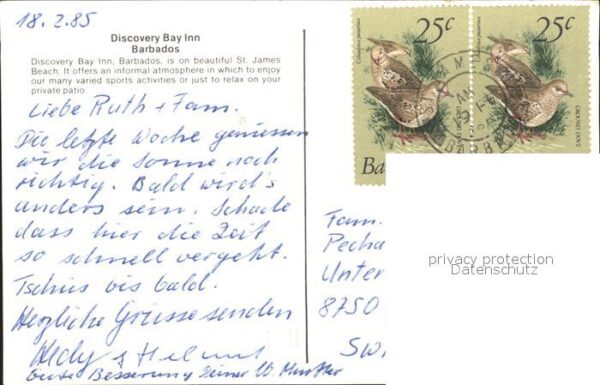 18.2.85
Discovery Bay Inn
Barbados
Discovery Bay Inn, Barbados, is on beautiful St. James
Beach. It offers an informal atmosphere in which to enjoy
our many varied sports activities or just to relax on your
private patio.
Liebe Ruth + Fam.
Die letzte Woche geniessen
wir die Sonne noch
richtig. Bald wird's
anders sein. Schade
dass hier die Zeit
so schnell vergeht.
Tschüs bis bald.
Herzliche Grüsse senden
Hedy & Helmut
Gute Besserung Deiner
25c
25c
GROUND DOVE
Ba
Fam.
Pecha
Unter
8750
Sw
privacy protection
Datenschutz